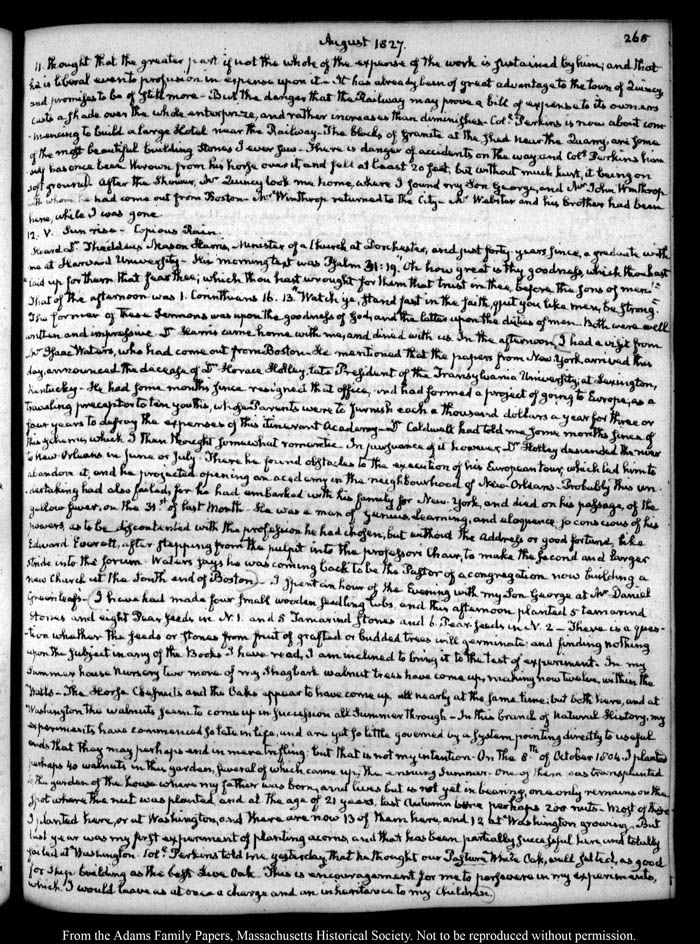 August 1827.
265
11. thought that the greater part if not the whole of the expense of the work is sustained by him; and that
he is liberal even to profusion in expense upon it — It has already been of great advantage to the town of Quincy,
and promises to be of still more — But the danger that the Railway may prove a bill of expense to its owners
casts a shade over the whole enterprize, and rather increases than diminishes. Col.l Perkins is now about com-
-mencing to build a large Hotel near the Railway. The blocks of granite at the shed near the Quarry, are some
of the most beautiful building stones I ever saw. There is danger of accidents on the way and Col.l Perkins him
self has once been thrown from his horse over it, and fell at least 20 feet, but without much hurt, it being on
soft ground. After the shower, Mr Quincy took me home, where I found my Son George, and Mr John Winthrop
with whom he had come out from Boston. Mr Winthrop returned to the City — Mr Webster and his brother had been
here, while I was gone.
12. V. Sun rise — Copious Rain.
Heard Dr Thaddeus Mason Harris, Minister of a Church at Dorchester, and just forty years since, a graduate with
me at Harvard University — His morning text was Psalm 31:19. "Oh how great is thy goodness, which thou hast
laid up for them that fear thee; which thou hast wrought for them that trust in thee, before the sons of men"—
That of the afternoon was 1. Corinthians 16. 13. "Watch ye, stand fast in the faith, quit you like men, be strong."
The former of these Sermons was upon the goodness of God, and the latter upon the duties of men. Both were well
written and impressive. Dr Harris came home with me, and dined with us. In the afternoon, I had a visit from
Mr Isaac Waters, who had come out from Boston. He mentioned that the papers from New York, arrived this
day, announced the decease of Dr Horace Holley, late President of the Transylvania University, at Lexington,
Kentucky — He had some months since resigned that office, and had formed a project of going to Europe, as a
travelling preceptor to ten youths, whose Parents were to furnish each a thousand dollars a year for three or
four years to defray the expenses of this itinerant Academy — Dr Caldwell had told me some months since of
this scheme, which I then thought somewhat romantic. In pursuance of it however Dr Holley descended the river
to New Orleans in June or July. There he found obstacles to the execution of his European tour, which led him to
abandon it, and he projected opening an academy in the neighbourhood of New-Orleans — Probably this un
dertaking had also failed, for he had embarked with his family for New-York, and died on his passage, of the
yellow fever, on the 31st of last Month — He was a man of genius, learning, and eloquence, so conscious of his
powers, as to be discontented with the profession he had chosen, but without the Address or good fortune, like
Edward Everett, after stepping from the pulpit into the professors Chair, to make the second and larger
stride into the forum. Waters says he was coming back to be the Pastor of a congregation now building a
new Church at the South end of Boston — I spent an hour of the Evening with my Son George at Mr Daniel
Greenleaf's — (I have had made four small wooden seedling tubs, and this afternoon planted 5 tamarind
stones and eight Pear seeds in N. 1. and 5 Tamarind stones and 6 Pear seeds in N. 2 — There is a ques-
-tion whether the seeds or stones from fruit of grafted or budded trees will germinate; and finding nothing
upon the subject in any of the Books I have read, I am inclined to bring it to the test of experiment. In my
summer house Nursery two more of my Shagbark walnut trees have come up, making now twelve, within the
Walls — The Horse Chesnuts and the Oaks appear to have come up, all nearly at the same time; but both here, and at
Washington the walnuts seem to come up in succession all Summer through — In this branch of natural History, my
experiments have commenced so late in life, and are yet so little governed by a System pointing directly to useful
ends that they may perhaps end in mere trifling; but that is not my intention. On the 8th of October 1804. I planted
perhaps 40 walnuts in this garden, several of which came up, the ensuing Summer. One of them was transplanted
to the garden of the house where my father was born, and lives but is not yet in bearing, one only remains on the
spot where the nut was planted and at the age of 21 years, last Autumn bore perhaps 200 nuts. Most of these
I planted here, or at Washington, and there are now 13 of them here and 12 at Washington growing. But
last year was my first experiment of planting acorns, and that has been partially successful here and totally
failed at Washington. Col.l Perkins told me yesterday that he thought our Pasture White Oak, well salted, as good
for ship building as the best Live Oak. This is encouragement for me to persevere in my experiments,
which I would leave as at once a charge and an inheritance to my children)
From the Adams Family Papers, Massachusetts Historical Society. Not to be reproduced without permission.